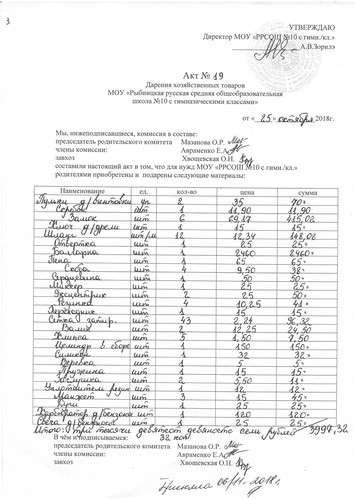 3.
УТВЕРЖДАЮ
Директор МОУ «РРСОШ №10 с гимн./кл.»
А.В.Зорилэ
Акт № 19
Дарения хозяйственных товаров
МОУ «Рыбницкая русская средняя общеобразовательная
школа №10 с гимназическими классами»
от « 25 » октября 2018г.
Мы, нижеподписавшиеся, комиссия в составе:
председатель родительского комитета Мазанова О.Р.
члены комиссии: Авраменко Е.А.
завхоз Хвощевская О.Н.
составили настоящий акт в том, что для нужд МОУ «РРСОШ №10 с гимн./кл.»
родителями приобретены и подарены следующие материалы:
Наименование ед. кол-во цена сумма
2 35 70=
1 11,90 11,90
Замок шт 6 69,17 415,02
Ключ шт 1 15 15=
Шланг 12 12,34 148,08
Отвертка шт 1 25 25=
шт 1 2460 2460=
Пена шт 1 65 65=
Скоба шт 4 9,50 38=
Сердцевина шт 1 50 50=
шт 1 25 25=
Эксцентрик шт 2 25 50=
шт 4 10,25 41=
Переходник шт 1 15 15=
Сетка затир. шт 43 2,24 96,32
Валик шт 2 12,25 24,50
шт 5 1,50 7,50
Цилиндр в сборе шт 1 150 150=
шт 1 32 32=
шт 1 5 5=
Пружинка шт 1 15 15=
шт 2 5,50 11=
Уплотнитель шт 1 12 12=
Манжет шт 3 15 45=
шт 1 25 25=
Карбюратор шт 1 120 120=
Свеча шт 1 25 25=
Итого: три тысячи девятьсот девяносто семь рублей 3997,32
В чём и подписываемся: 32 коп.
председатель родительского комитета Мазанова О.Р.
члены комиссии: Авраменко Е.А.
завхоз Хвощевская О.Н.
Приняла 06/11-2018г.